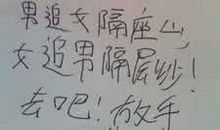 男追女隔座山,
女追男隔层纱!
去吧!放手